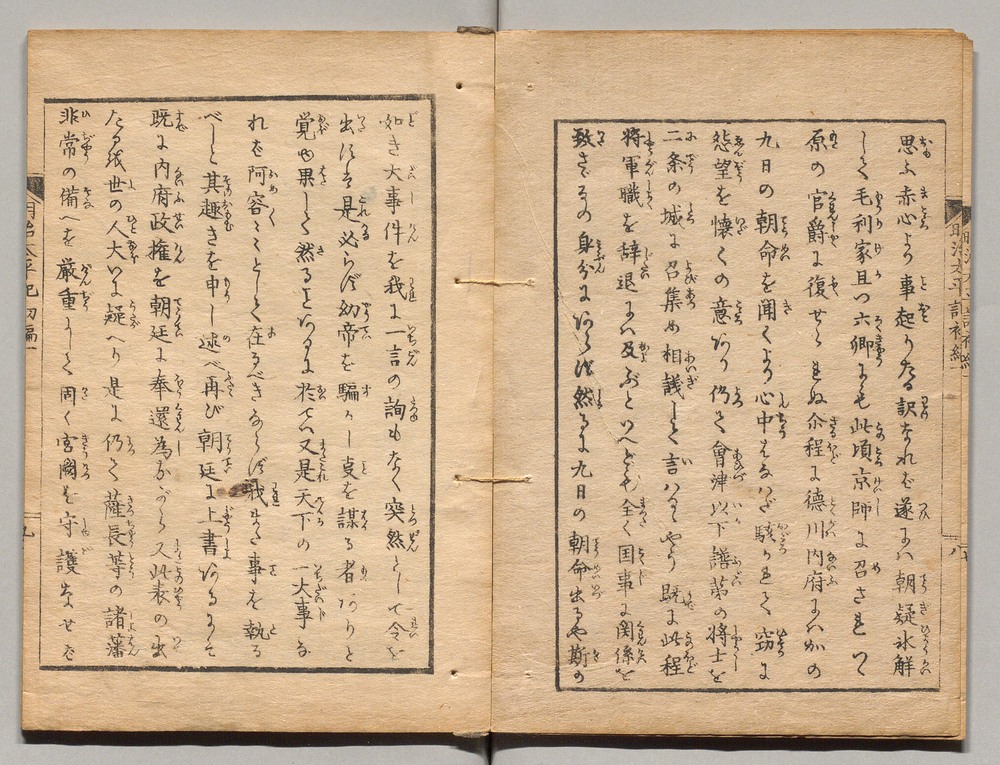 思ふ赤心より事起りたる訳なれば遂には朝疑氷解
して毛利家且つ六卿にも此頃京師に召されて
原の官爵に復せられぬ尒程に徳川内府にハかの
九日の朝命を聞くより心中はなはだ駭かれて窃に
怨望を懐くの意あり仍て會津以下譜第の将士を
二条の城に召集め相議して言はるゝやう既に此程
将軍職を辞退にハ及ぶといへども全く国事に関係を
致さゞるの身分にあらず然るに九日の朝命出るや斯の
如き大事件を我に一言の詢もなく突然として令を
出さるゝ是必らず幼帝を騙かし奠を謀る者ありと
覚ゆ果して然るとあるに於てハ又是天下の一大事な
れば阿容々々として在るべきならず我また事を執る
べしと其趣きを申し述べ再び朝廷に上書あるにて
既に内府政権を朝廷に奉還為ながら又此表の出
たる故世の人大いに疑へり是に仍て薩長等の諸藩
非常の備へを厳重にして周く宮闕を守護なせば
明治太平記初編一
九
明治太平記初編
八